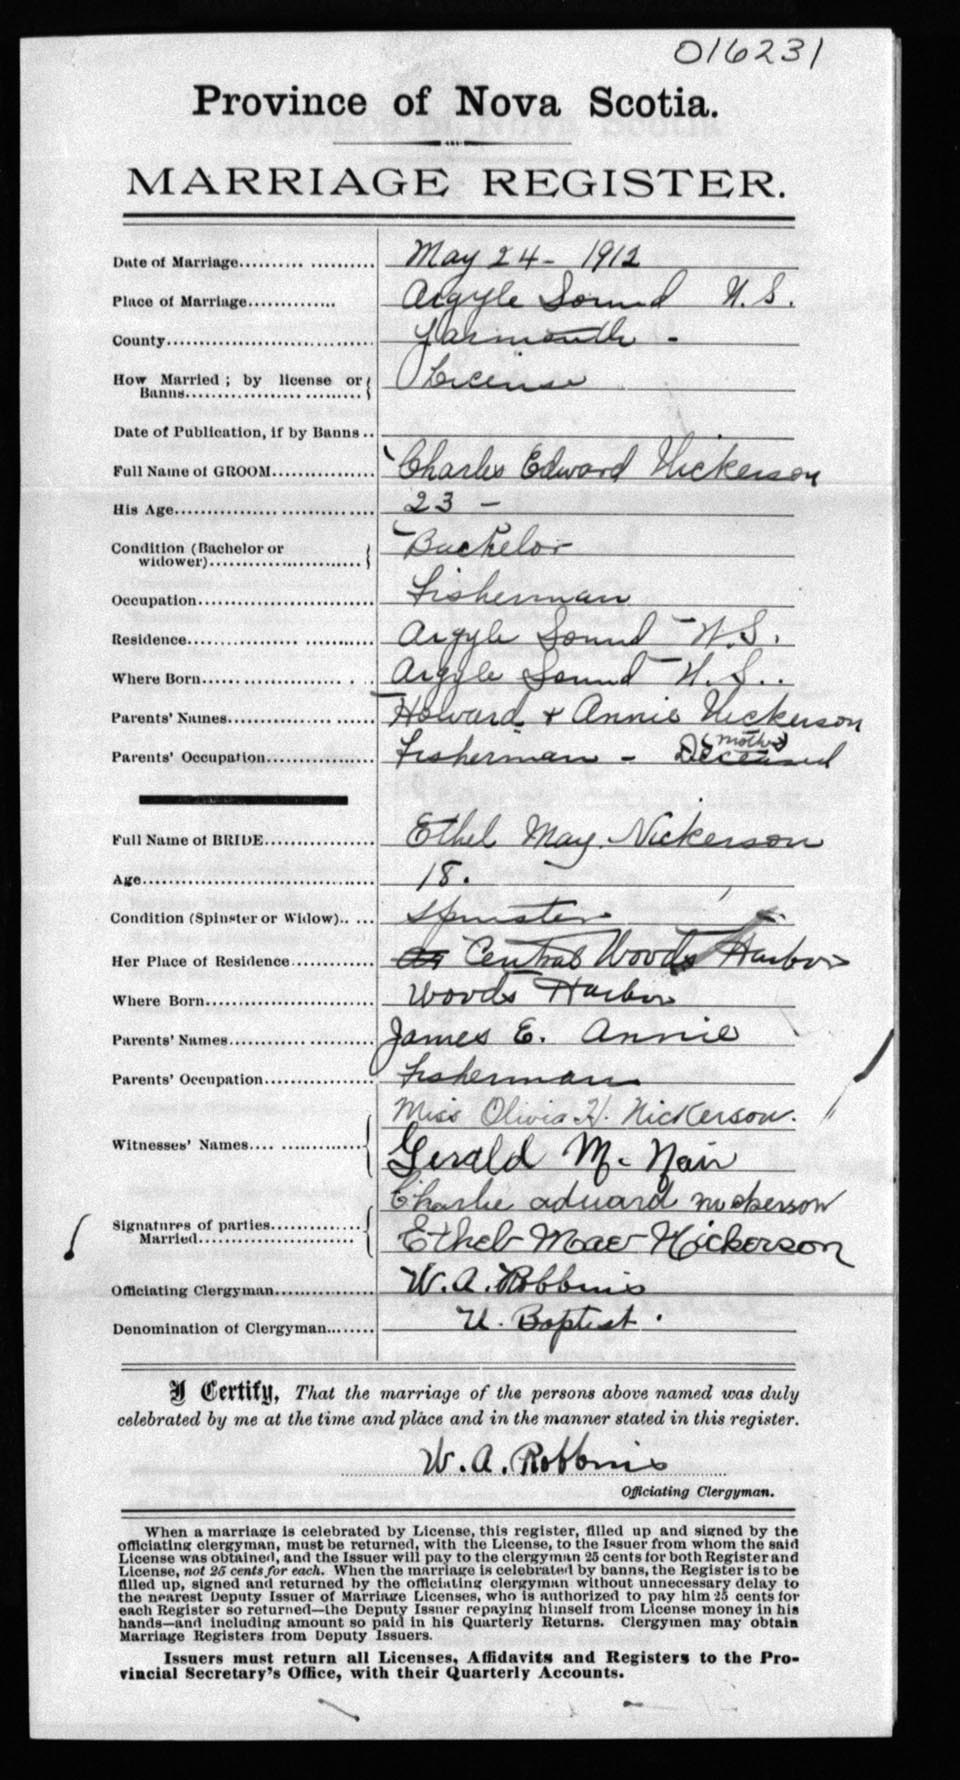 016231
Province of Nova Scotia.
MARRIAGE REGISTER.
Date of Marriage.......... .......... May 24 - 1912
Place of Marriage............. Argyle Sound N.S.
County.............................. Yarmouth -
How Married ; by license or License
Banns..............................
Date of Publication, if by Banns ..
Full Name of GROOM................ Charles Edward Nickerson
His Age.............................. 23 -
Condition (Bachelor or Bachelor
widower)........................
Occupation.......................... Fisherman
Residence............ .......... Argyle Sound N.S.
Where Born............ ..... . . Argyle Sound N.S..
Parents' Names............ ...... Howard & Annie Nickerson
(mother)
Parents' Occupation.................. Fisherman - Deceased
Full Name of BRIDE.................. Ethel May Nickerson
Age.................................... 18.
Condition (Spinster or Widow).. ... Spinster
Her Place of Residence............ Central Woods Harbor
Where Born.......................... Woods Harbor
Parents' Names............ .......... James E. Annie
Parents' Occupation................. Fisherman
Miss Olivia H. Nickerson.
Witnesses' Names.... ............. Gerald McNair
Charlie aduard nickerson
Signatures of parties..............
Married........................ Ethel Mae Nickerson
Officiating Clergyman............... W. A. Robbins
Denomination of Clergyman........ U. Baptist.
I Certify, That the marriage of the persons above named was duly
celebrated by me at the time and place and in the manner stated in this register.
W. A. Robbins
Officiating Clergyman.
When a marriage is celebrated by License, this register, filled up and signed by the
officiating clergyman, must be returned, with the License, to the Issuer from whom the said
License was obtained, and the Issuer will pay to the clergyman 25 cents for both Register and
License, not 25 cents for each. When the marriage is celebrated by banns, the Register is to be
filled up, signed and returned by the officiating clergyman without unnecessary delay to
the nearest Deputy Issuer of Marriage Licenses, who is authorized to pay him 25 cents for
each Register so returned—the Deputy Issuer repaying himself from License money in his
hands—and including amount so paid in his Quarterly Returns. Clergymen may obtain
Marriage Registers from Deputy Issuers.
Issuers must return all Licenses, Affidavits and Registers to the Pro-
vincial Secretary's Office, with their Quarterly Accounts.